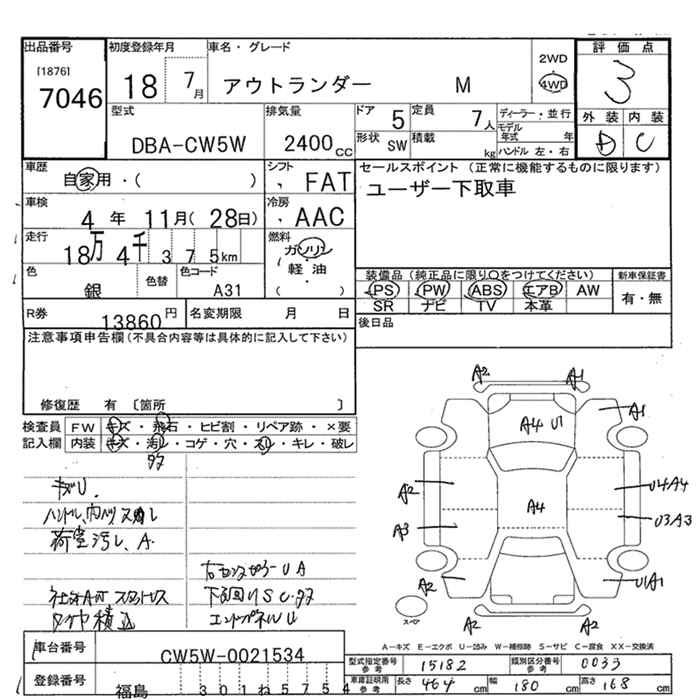 出品番号
[1876]
7046
初度登録年月
18 7月
車名・グレード
アウトランダー M
2WD
4WD
評価点
3
型式
DBA-CW5W
排気量
2400cc
ドア 5
定員 7人
形状 SW
積載 kg
ディーラー・並行
モデル年式 年
ハンドル 左・右
外装 内装
D C
車歴
自家用・( )
シフト
、FAT
セールスポイント(正常に機能するものに限ります)
ユーザー下取車
車検
4年 11月(28日)
冷房
、AAC
走行
18万4千375km
燃料
ガソリン
軽・油
( )
色
銀
色替
色コード
A31
装備品(純正品に限り○をつけてください)
PS PW ABS エアB AW
SR ナビ TV 本革
新車保証書
有・無
R券
13860円
名変期限 月 日
後日品
注意事項申告欄(不具合内容等は具体的に記入して下さい)
修復歴 有 〔箇所 〕
検査員 FW キズ・飛石・ヒビ割・リペア跡・×要
記入欄 内装 キズ・汚レ・コゲ・穴・スレ・キレ・破レ
荷室汚し、A
タイヤ積込
A2 A1
A4 U1
A1
A2
A4
U4A4
A3
U3A3
A2
U1A1
A2 A2
スペア
A-キズ E-エクボ U-凹み W-補修跡 S-サビ C-腐食 XX-交換済
車台番号
CW5W-0021534
登録番号
福島 301ね5754
型式指定番号参考 15182
類別区分番号参考 0033
車庫証明用参考 長さ 464cm 幅 180cm 高さ 168cm